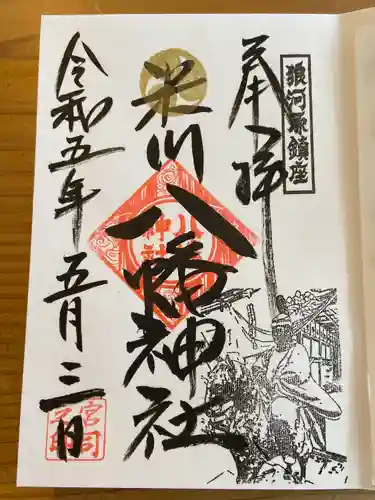 奉拝
狼河原鎮座
米川
八幡神社
令和五年五月三日
宮司